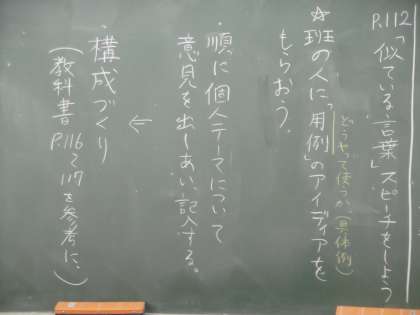 P.112「似ている言葉」スピーチをしよう
☆班の人に「用例」のアイディアを
どうやって使うか(具体例)
もらおう。
・順に個人テーマについて
意見を出しあい、記入する。
↓
・構成づくり
(教科書P.116~117を参考に、)